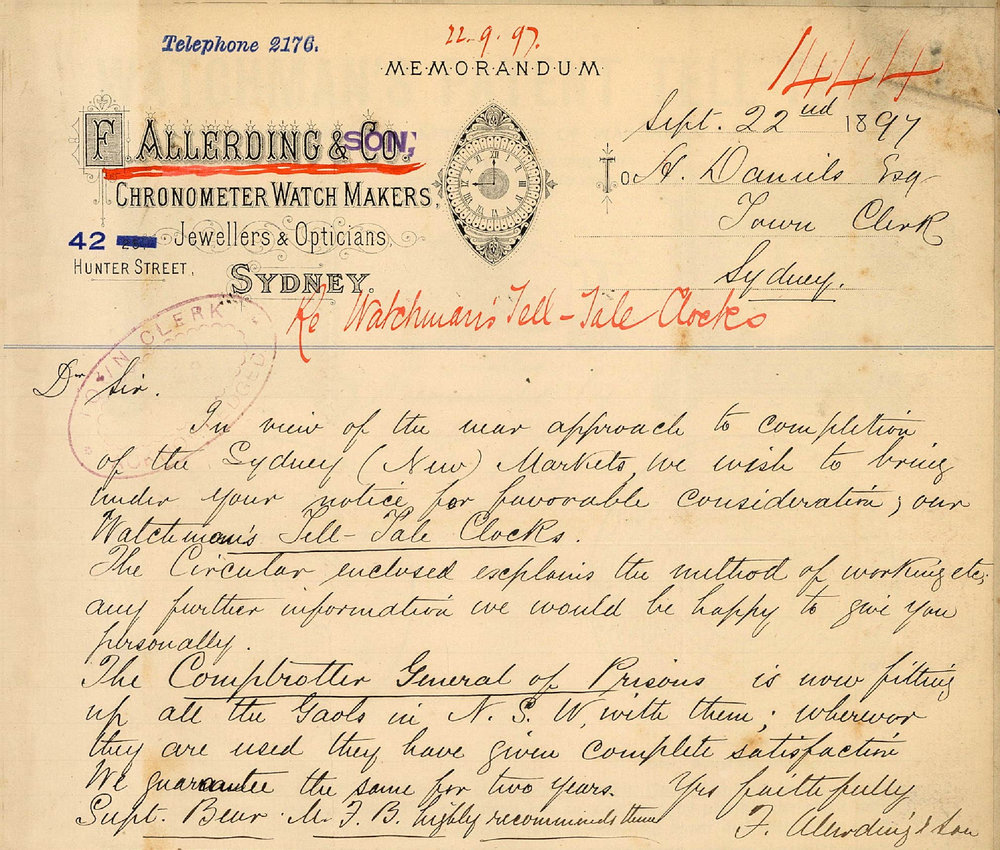 Telephone 2176.
22.9.97.
MEMORANDUM
1444
F. ALLERDING & CO.
SON,
CHRONOMETER WATCH MAKERS,
Jewellers & Opticians,
42
HUNTER STREET,
SYDNEY.
Sept. 22nd 1897
To A. Daniels Esq
Town Clerk
Sydney.
Re Watchman's Tell-Tale Clocks
TOWN CLERK
Dr Sir.
In view of the near approach to completion
of the Sydney (New) Markets, we wish to bring
under your notice for favorable consideration; our
Watchman's Tell-Tale Clocks.
The Circular enclosed explains the method of working etc.
any further information we would be happy to give you
personally.
The Comptroller General of Prisons is now fitting
up all the Gaols in N.S.W, with them; wherever
they are used they have given complete satisfaction
We guarantee the same for two years. Yrs faithfully
Supt. Bear M.F.B. highly recommends them
F. Allerding & Son